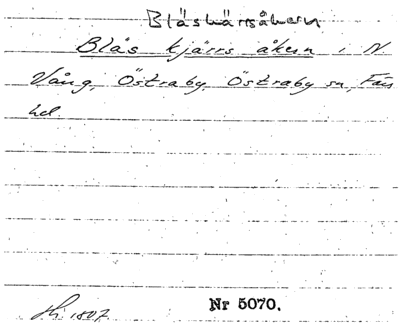 Bläskärrsåkern
Blås kjärrs åkern i N.
Vång, Östraby, Östraby sn, Färs
hd.
Hi. 1807. Nr 5070.